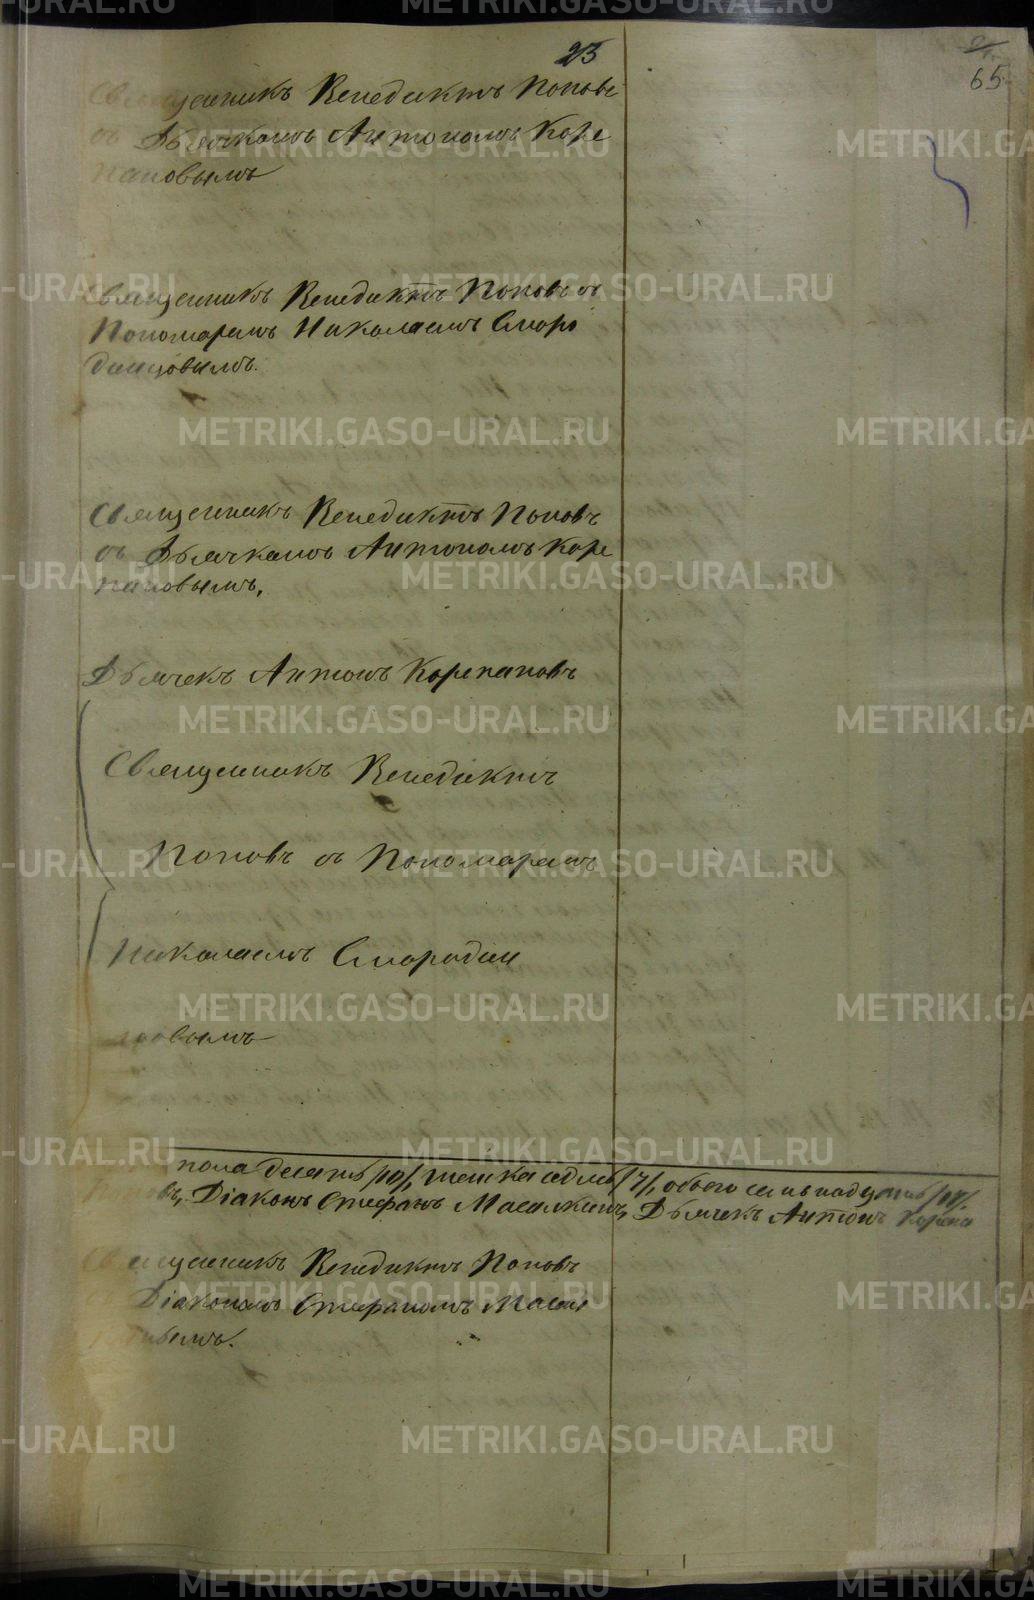 23
65
Священникъ Венедиктъ Поповъ
съ Дьячкомъ Антономъ Коре
пановымъ
Священникъ Венедиктъ Поповъ съ
Пономаремъ Николаемъ Сморо
динцовымъ.
Священникъ Венедиктъ Поповъ
съ Дьячкомъ Антономъ Коре
пановымъ.
Дьячекъ Антонъ Корепановъ
Священникъ Венедиктъ
Поповъ съ Пономаремъ
Николаемъ Смородин
цовымъ
пола десять /10/, женска седмь /7/, обоего семьнадцать /17/.
Поповъ, Діаконъ Стефанъ Масалкинъ, Дьячекъ Антонъ Корепа
Священникъ Венедиктъ Поповъ
Діакономъ Стефаномъ Масал
METRIKI.GASO-URAL.RU